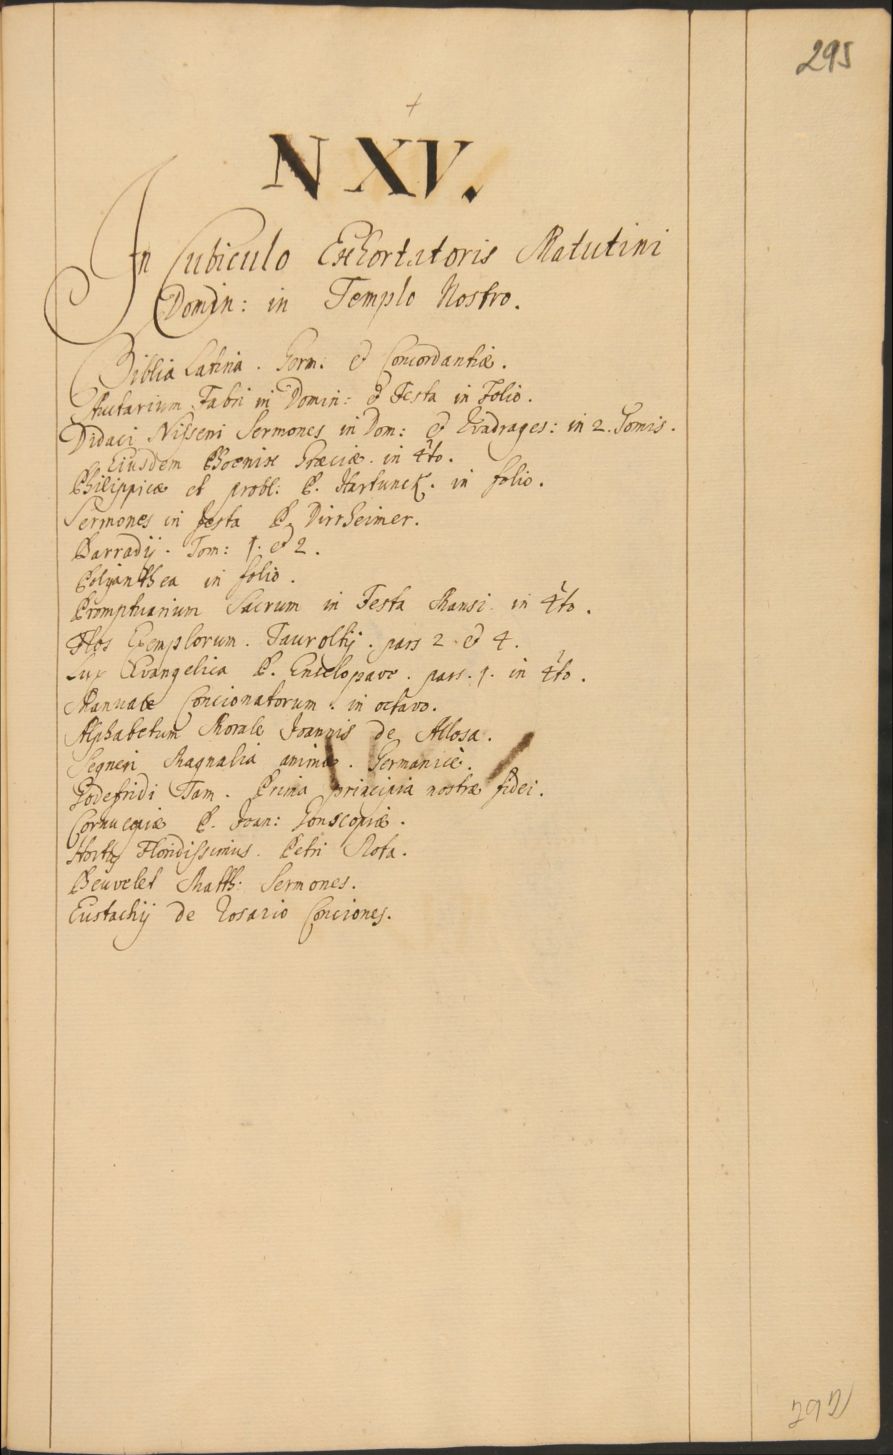 295
+
N XV.
In Cubiculo Exhortatoris Matutini
Domin: in Templo Nostro.
Biblia Latina. Germ: et Concordantiæ.
Auctarium Fabri in Domin: et Festa in Folio.
Didaci Nisseni Sermones in Dom: et Quadrages: in 2. Tomis.
Eiusdem Phoenix Græciæ. in 4to.
Philippicæ et probl. P. Hartunck. in folio.
Sermones in festa P. Dirrheimer.
Barradij. Tom: 1. et 2.
Polyanthea in folio.
Promptuarium Sacrum in Festa Mansi. in 4to.
Flos Exemplorum. Tauroltij. pars 2 et 4.
Lux Evangelica P. Engelgrave. pars. 1. in 4to.
Manuale Concionatorum. in octavo.
Alphabetum Morale Joannis de Allosa.
Segneri Magnalia animæ. Germanicè.
Godefridi Tam. Prima principia nostræ fidei.
Cornucopiæ P. Joan: Gonscopiæ.
Hortus Floridissimus. Petri Rota.
Beuvelet Matth: Sermones.
Eustachij de Rosario Conciones.
292